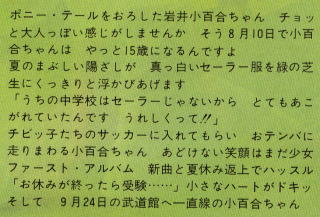 ポニー・テールをおろした岩井小百合ちゃん　チョッ
と大人っぽい感じがしませんか　そう8月10日で小百
合ちゃんは　やっと15歳になるんですよ
夏のまぶしい陽ざしが　真っ白いセーラー服を緑の芝
生にくっきりと浮かびあげます
「うちの中学校はセーラーじゃないから　とてもあこ
がれていたんです　うれしくって!!」
チビッ子たちのサッカーに入れてもらい　おテンバに
走りまわる小百合ちゃん　あどけない笑顔はまだ少女
ファースト・アルバム　新曲と夏休み返上でハッスル
「お休みが終ったら受験……」小さなハートがドキッ
そして　9月24日の武道館へ一直線の小百合ちゃん